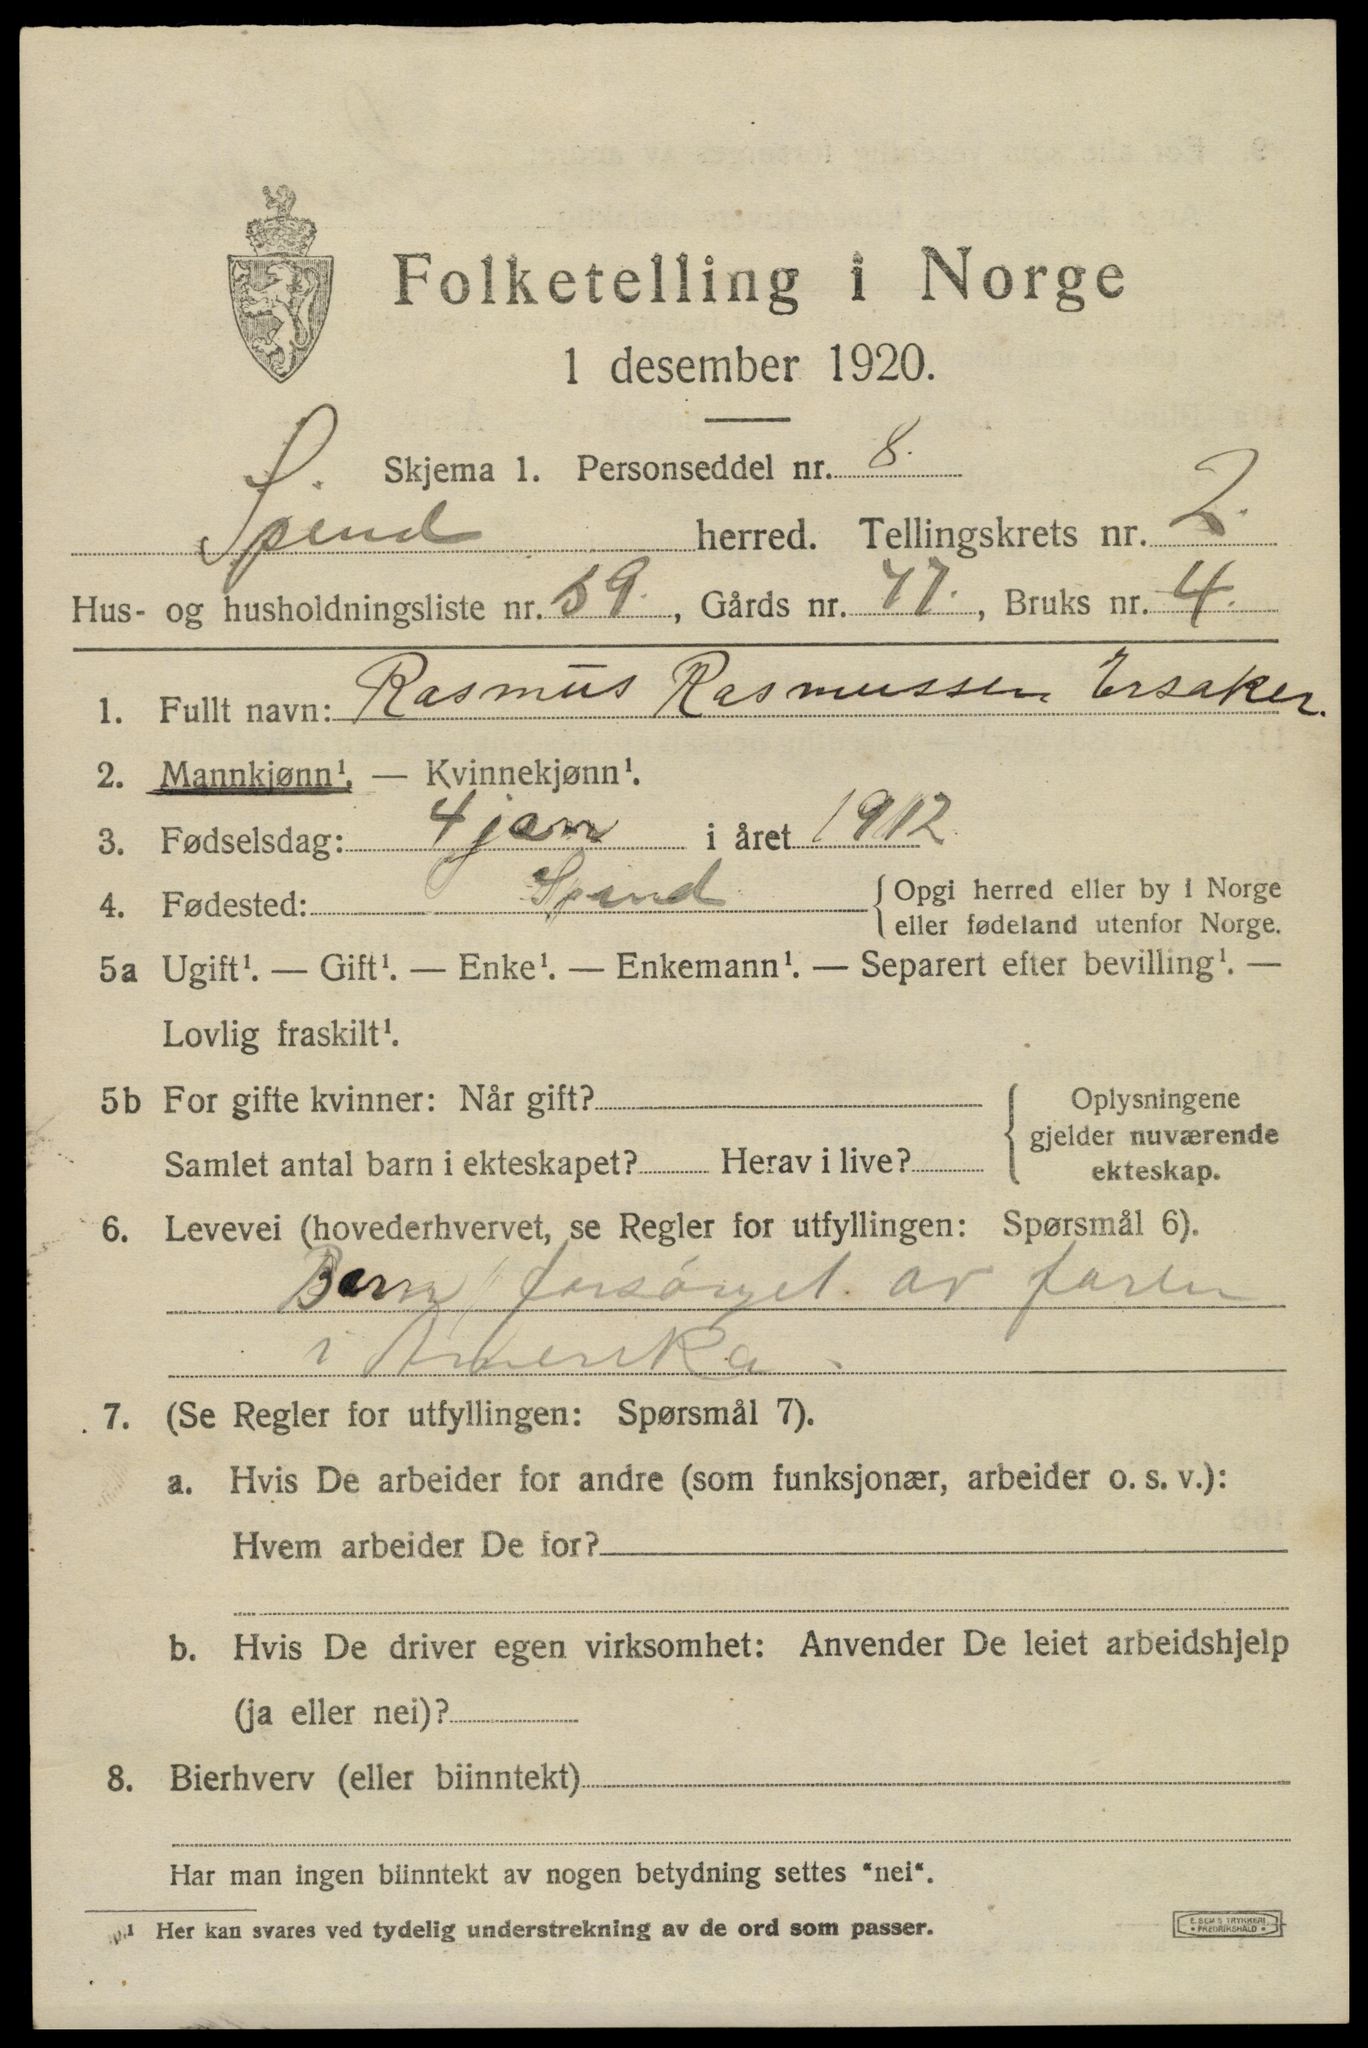 Folketelling i Norge
1 desember 1920.
Skjema 1. Personseddel nr. 8.
Spind herred. Tellingskrets nr. 2.
Hus- og husholdningsliste nr. 59., Gårds nr. 77., Bruks nr. 4.
1. Fullt navn: Rasmus Rasmussen Ersaker.
2. Mannkjønn¹. — Kvinnekjønn¹.
3. Fødselsdag: 4 jan i året 1912
4. Fødested: Spind { Opgi herred eller by i Norge
eller fødeland utenfor Norge.
5a Ugift¹. — Gift¹. — Enke¹. — Enkemann¹. — Separert efter bevilling¹. —
Lovlig fraskilt¹.
5b For gifte kvinner: Når gift? { Oplysningene
gjelder nuværende
Samlet antal barn i ekteskapet? Herav i live? ekteskap.
6. Levevei (hovederhvervet, se Regler for utfyllingen: Spørsmål 6).
Barn / forsørget av faren
i Amerika.
7. (Se Regler for utfyllingen: Spørsmål 7).
a. Hvis De arbeider for andre (som funksjonær, arbeider o. s. v.):
Hvem arbeider De for?
b. Hvis De driver egen virksomhet: Anvender De leiet arbeidshjelp
(ja eller nei)?
8. Bierhverv (eller biinntekt)
Har man ingen biinntekt av nogen betydning settes "nei".
¹ Her kan svares ved tydelig understrekning av de ord som passer.
E. SEM'S TRYKKERI
FREDRIKSHALD